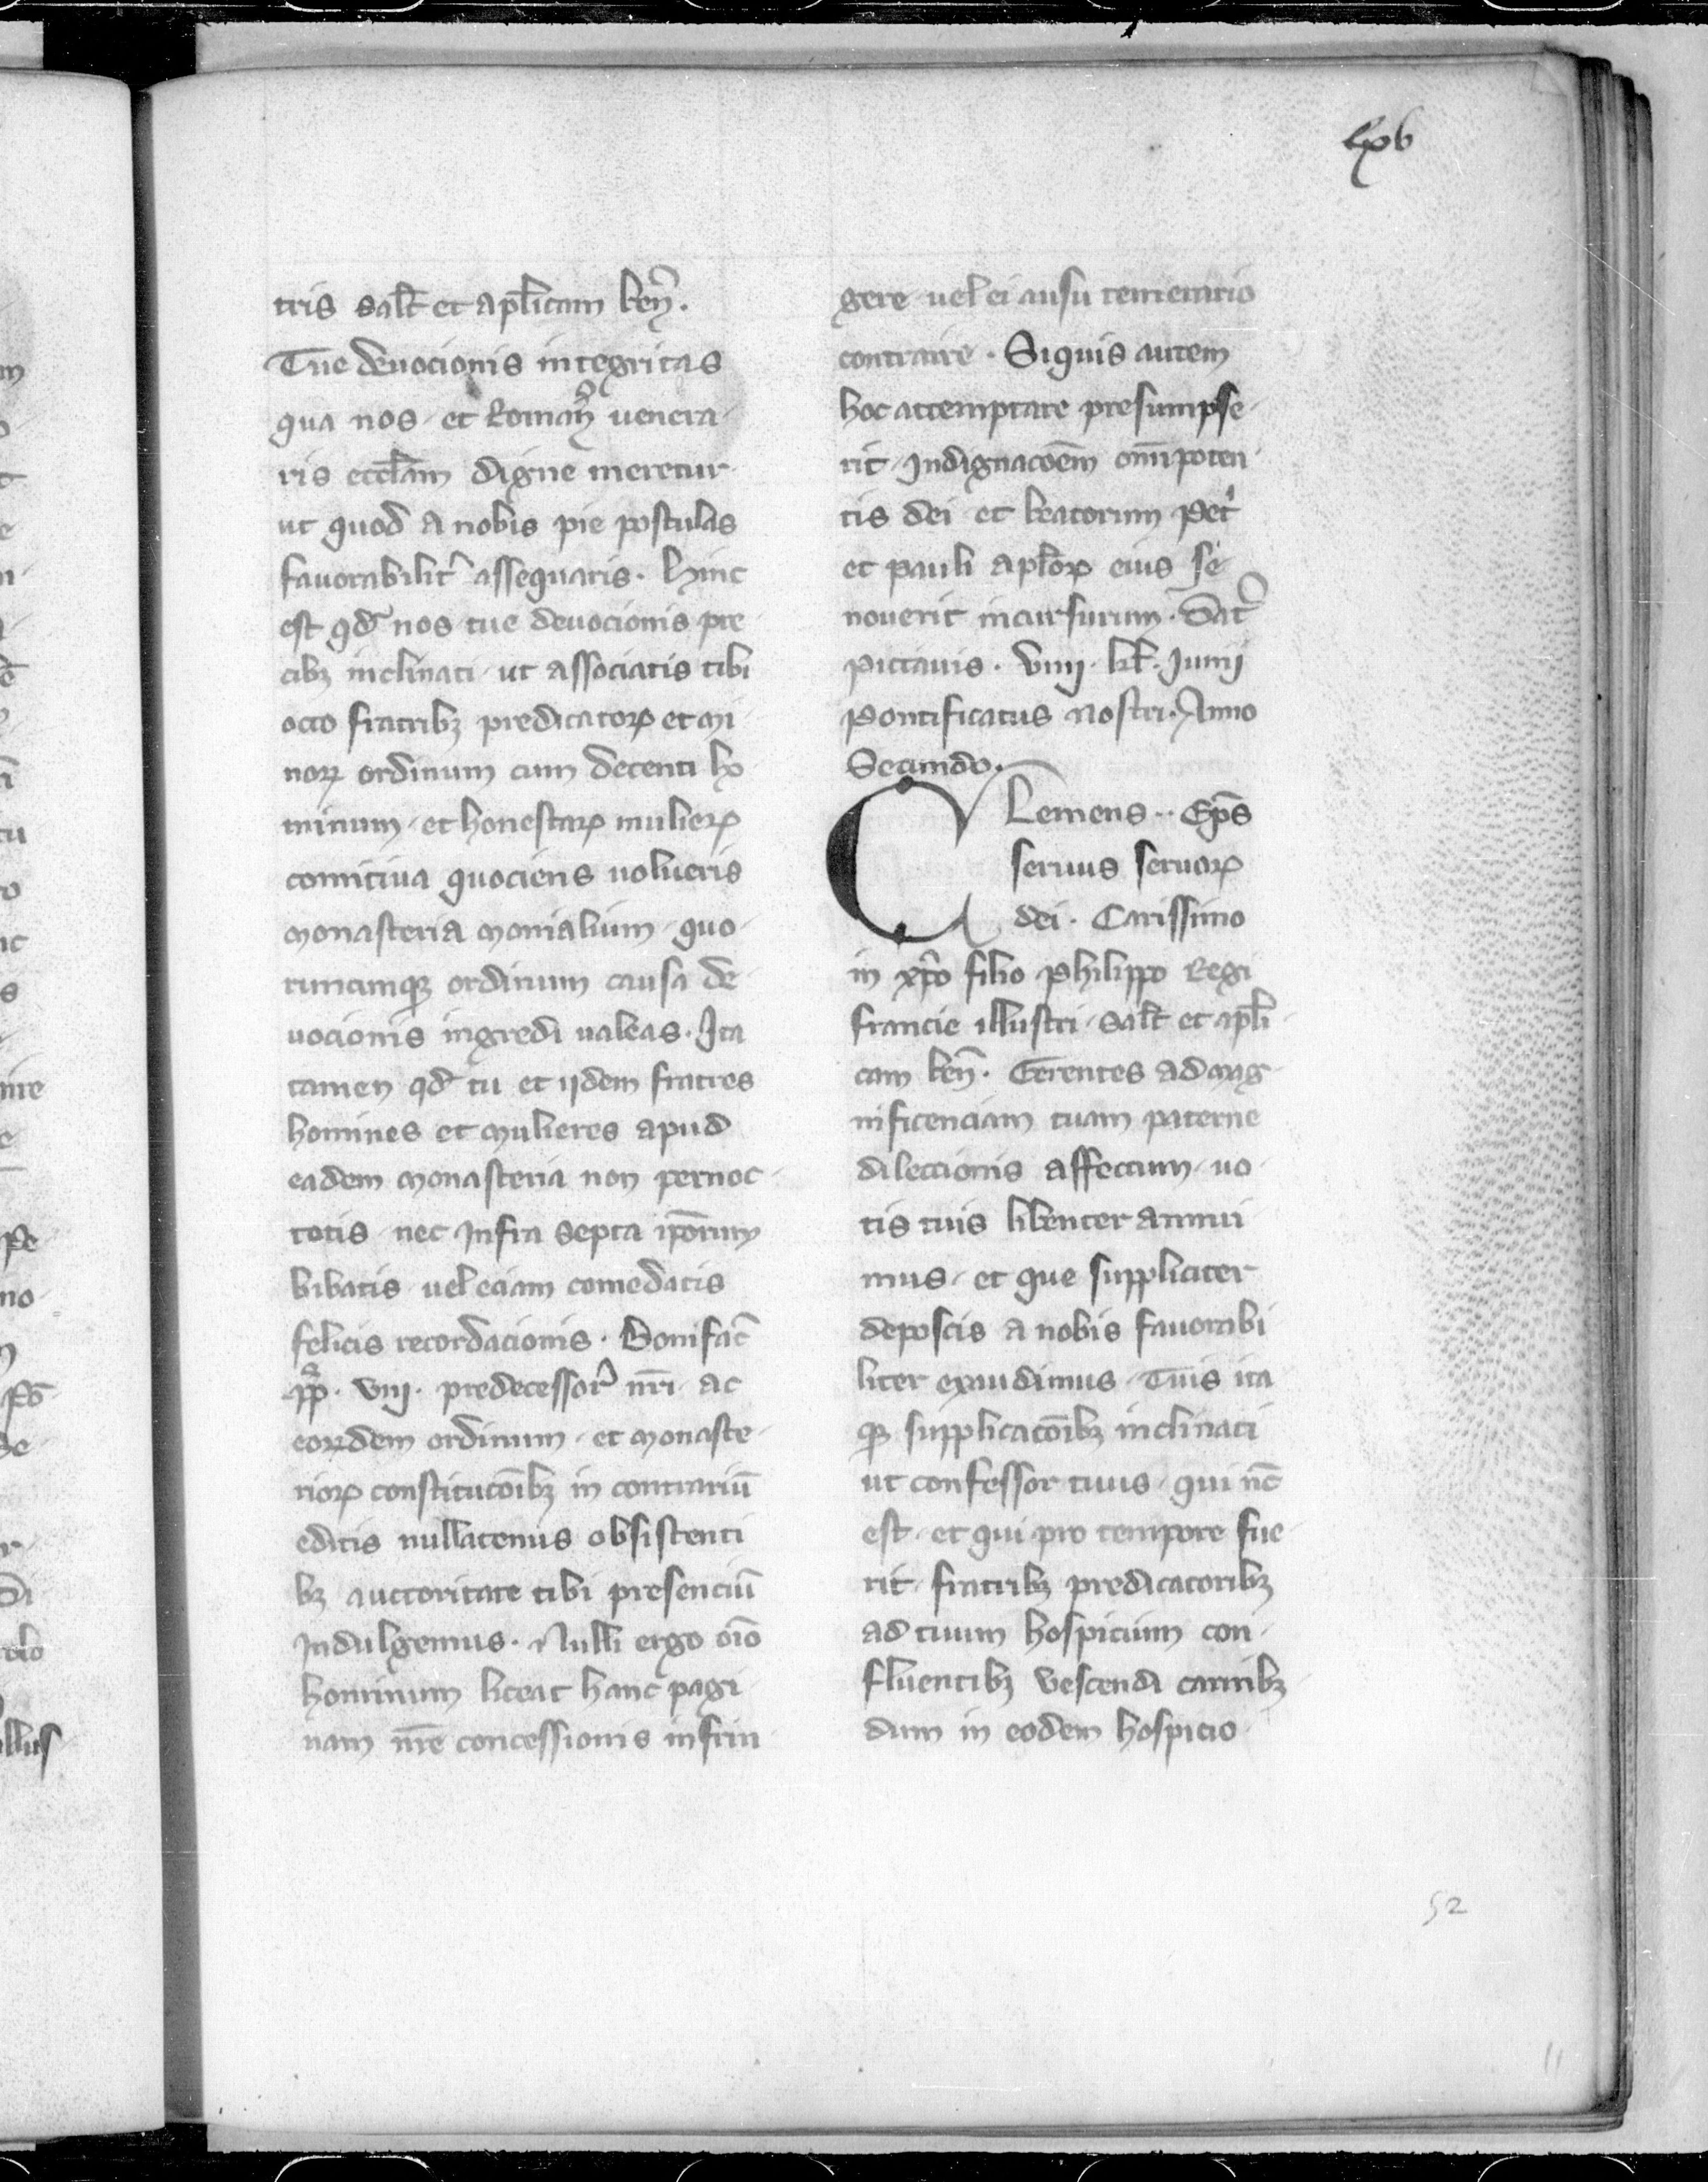 lxv
tris salt̄ et apl̄icam ben̄.
Tue deuocionis integritas
qua nos et Roman̄ uenera
ris eccl̄am digne meretur
ut quod a nobis pie postulas
fauorabilit̉ assequaris. Hinc
est qd̄ nos tue deuocionis pre
cibꝫ inclinati ut associatis tibi
octo fratribꝫ predicatoꝝ et mi
noꝝ ordinum cum decenti ho
minum et honestaꝝ mulieꝝ
comitiua quociens uolueris
monasteria monialium quo
rumcumqꝫ ordinum causa de
uocionis ingredi ualeas. Ita
tamen qd̄ tu et ijdem fratres
homines et mulieres apud
eadem monasteria non pernoc
tetis nec infra septa ip̄orum
bibatis uel eciam comedatis
felicis recordacionis. Bonifac̄
pp̄. viij. predecessor̉ nr̄i ac
eoꝝdem ordinum et monaste
rioꝝ constitucōibꝫ in contrariū
editis nullatenus obsistenti
bꝫ auctoritate tibi presenciū
Indulgemus. Nulli ergo oīo
hominum liceat hanc pagi
nam nr̄e concessionis infrin
gere uel ei ausu temerario
contraire. Siquis autem
hoc attemptare presumpse
rit Indignacōem om̄ipoten
tis dei et beatorum Pet̉
et Pauli apl̄oꝝ eius se
nouerit incursurum. Dat̉
pictauis. viiij. kl̄. Junij
Pontificatus nostri. Anno
Secundo.
Clemens.. Ep̄s
seruus seruoꝝ
dei. Carissimo
in xp̄o filio Philippo Regi
francie illustri salt̄ et apl̄i
cam ben̄. Gerentes ad mag
nificenciam tuam paterne
dileccionis affectum uo
tis tuis libenter annui
mus et que suppliciter
deposcis a nobis fauorabi
liter exaudimus Tuis ita
qꝫ supplicacōibꝫ inclinati
ut confessor tuus qui nc̄
est et qui pro tempore fue
rit fratribꝫ predicatoribꝫ
ad tuum hospicium con
fluentibꝫ vescendi carnibꝫ
dum in eodem hospicio
52